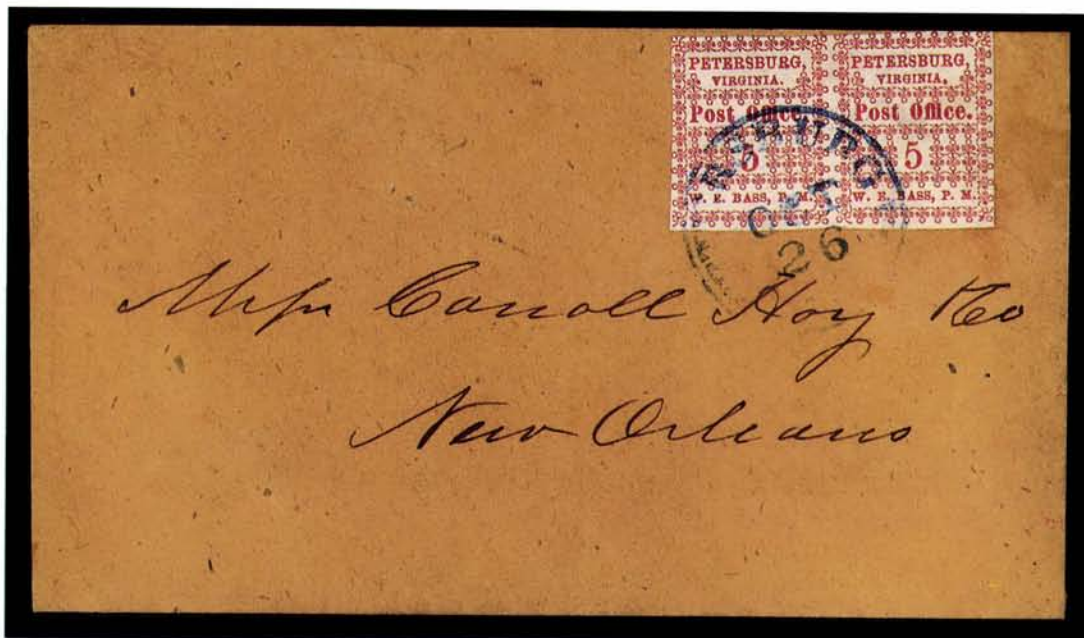 PETERSBURG, VIRGINIA. Post Office. 5 W. E. BASS, P. M.
PETERSBURG, VIRGINIA. Post Office. 5 W. E. BASS, P. M.
RSBURG
OCT
26
Messrs Carroll Hoy &Co
New Orleans